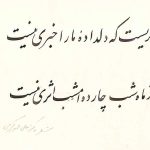 ریست که دلدادهٔ ما را خبری نیست
ز ماه شب چارده امشب اثری نیست